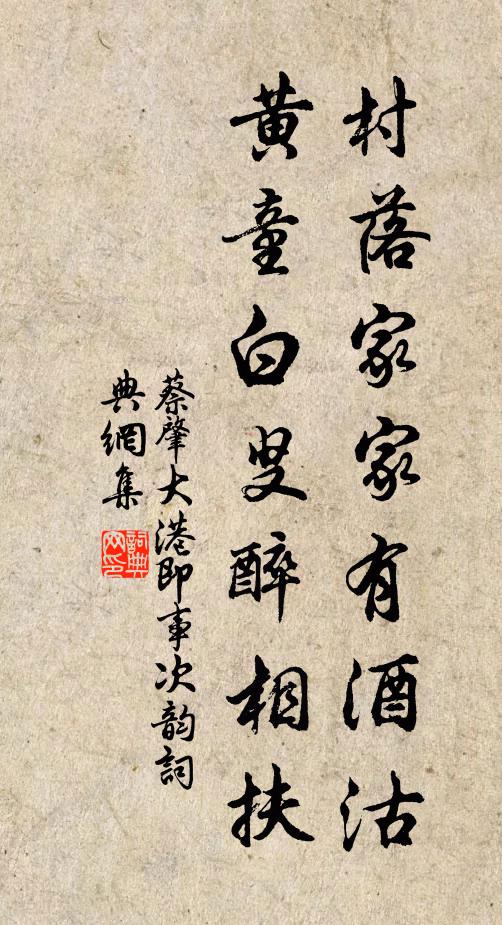 村落家家有酒沽
黄童白叟醉相扶
蔡肇大港即事次韵詞
典網集
詞典网印